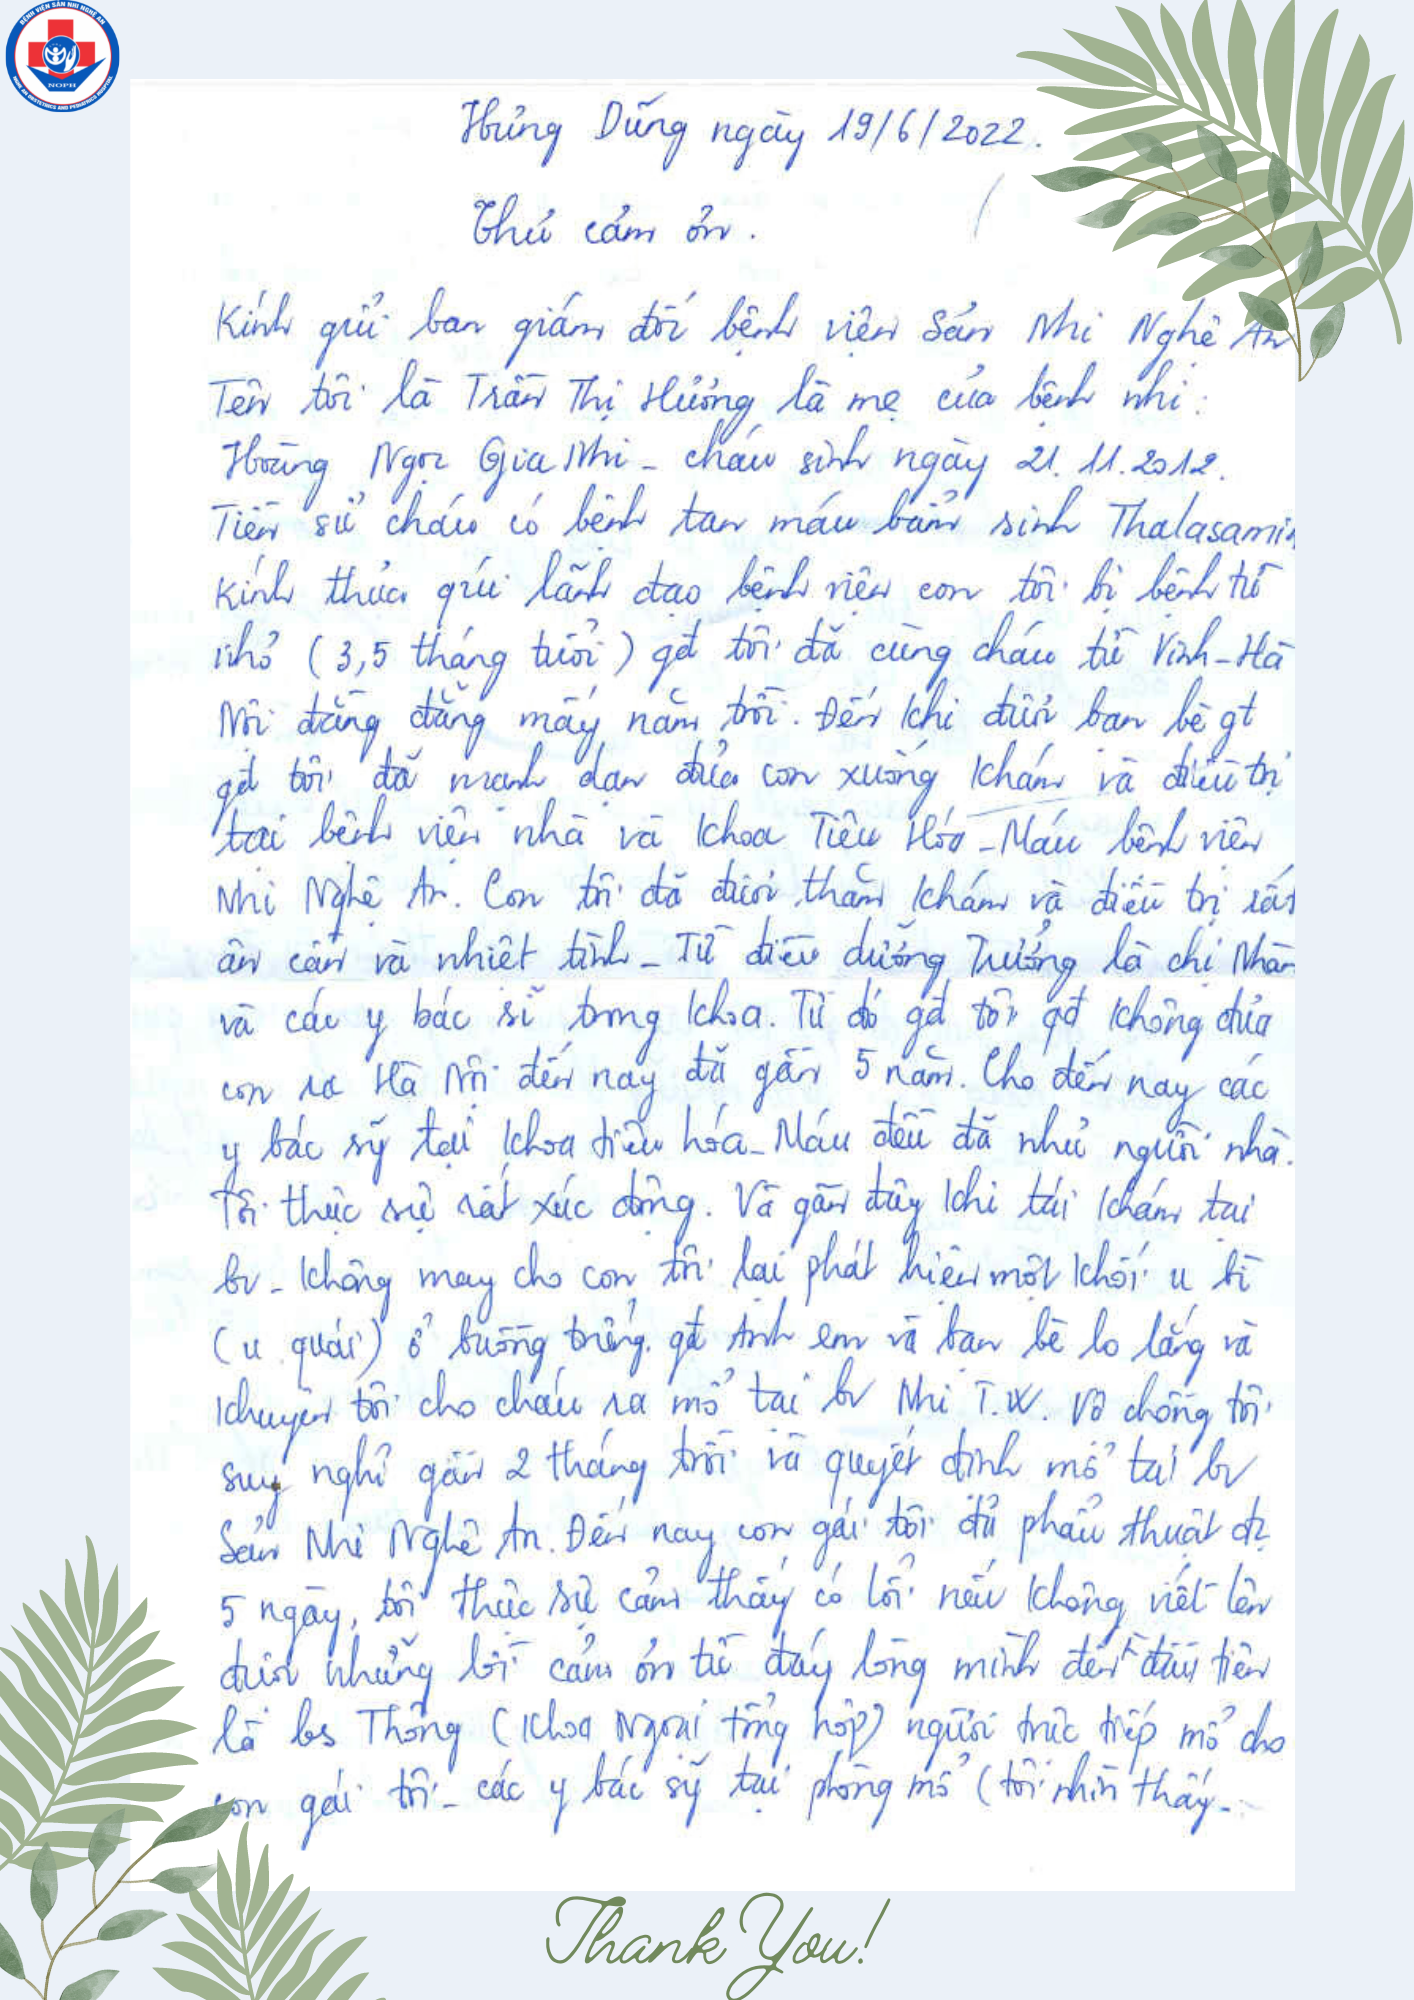 BỆNH VIỆN SẢN NHI NGHỆ AN
NOPH
NGHE AN OBSTETRICS AND PEDIATRICS HOSPITAL
Hưng Dũng ngày 19/6/2022.
Thư cảm ơn.
Kính gửi ban giám đốc bệnh viện Sản Nhi Nghệ An
Tên tôi là Trần Thị Hương là mẹ của bệnh nhi:
Hoàng Ngọc Gia Nhi - cháu sinh ngày 21.11.2012.
Tiền sử cháu có bệnh tan máu bẩm sinh Thalasamin
Kính thưa quí lãnh đạo bệnh viện con tôi bị bệnh từ
nhỏ (3,5 tháng tuổi) gđ tôi đã cùng cháu từ Vinh - Hà
Nội đằng đẵng mấy năm trời. Đến khi được bạn bè gt
gđ tôi đã mạnh dạn đưa con xuống khám và điều trị
tại bệnh viện nhà và khoa Tiêu Hóa - Máu bệnh viện
Nhi Nghệ An. Con tôi đã được thăm khám và điều trị rất
ân cần và nhiệt tình - Từ điều dưỡng Trưởng là chị Nhàn
và các y bác sĩ trong khoa. Từ đó gđ tôi gđ không đưa
con ra Hà Nội đến nay đã gần 5 năm. Cho đến nay các
y bác sỹ tại khoa tiêu hóa - Máu đều đã như người nhà.
Tôi thực sự rất xúc động. Và gần đây khi tái khám tại
bv - không may cho con tôi lại phát hiện một khối u bì
(u quái) ở buồng trứng. gđ Anh em và bạn bè lo lắng và
khuyên tôi cho cháu ra mổ tại bv Nhi T.W. Vợ chồng tôi
suy nghĩ gần 2 tháng trời và quyết định mổ tại bv
Sản Nhi Nghệ An. Đến nay con gái tôi đã phẫu thuật đc
5 ngày, tôi thực sự cảm thấy có lỗi nếu không viết lên
được những lời cảm ơn từ đáy lòng mình đến đầu tiên
là bs Thông (khoa Ngoại tổng hợp) người trực tiếp mổ cho
con gái tôi - các y bác sỹ tại phòng mổ (tôi nhìn thấy -
Thank You!